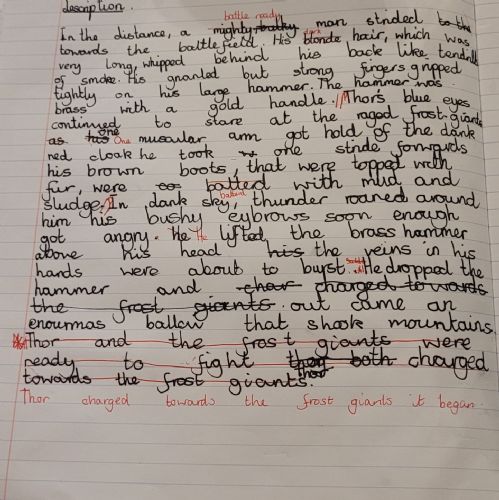 description.
battle ready
In the distance, a mighty man strided to the
towards the battlefield. His blonde dark hair, which was
very long, whipped behind his back like tendrils
of smoke. His gnarled but strong fingers gripped
tightly on his large hammer. The hammer was
brass with a gold handle. // Thors blue eyes
continued to stare at the raged frost-giants
as his one One muscular arm got hold of the dank
red cloak he took one stride forwards
his brown boots, that were topped with
fur, were batted with mud and
sludge. In dank sky, thunder roared around
him his bushy eybrows soon enough
got angry. he He lifted the brass hammer
above his head his the veins in his
hands were about to burst. He dropped the
hammer and char charged towards
the frost giants out came an
enourmas ballow that shook mountains.
Thor and the frost giants were
ready to fight they both charged
Thor
towards the frost giants.
Thor charged towards the frost giants it began.